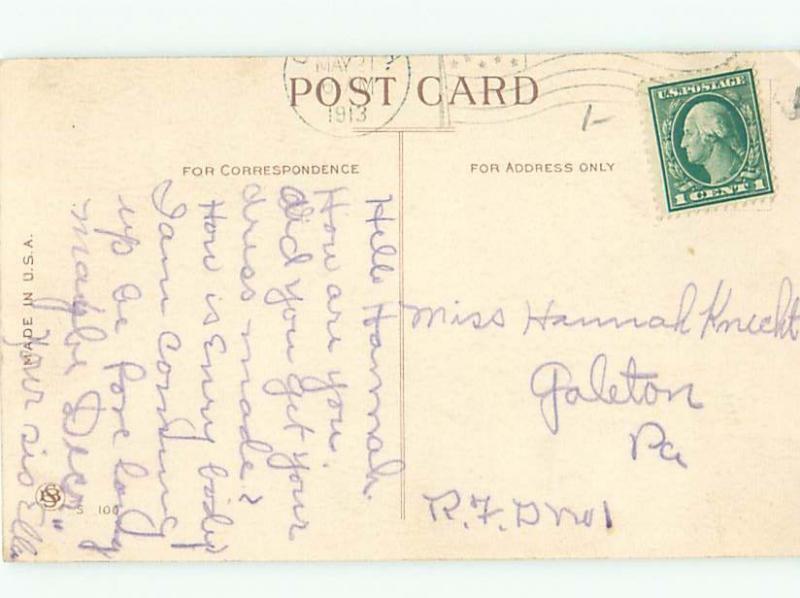 MAY 21
M
1913
POST CARD
U.S. POSTAGE
1 CENT 1
1-
FOR CORRESPONDENCE
FOR ADDRESS ONLY
Hello Hannah.
How are you.
did you get your
dress made?
How is Evry bodey
I am comeing
up be fore long
maybe Deco"
your sis Ella
Miss Hannah Knecht
Galeton
Pa
R.F.D no 1
MADE IN U.S.A.
S 100